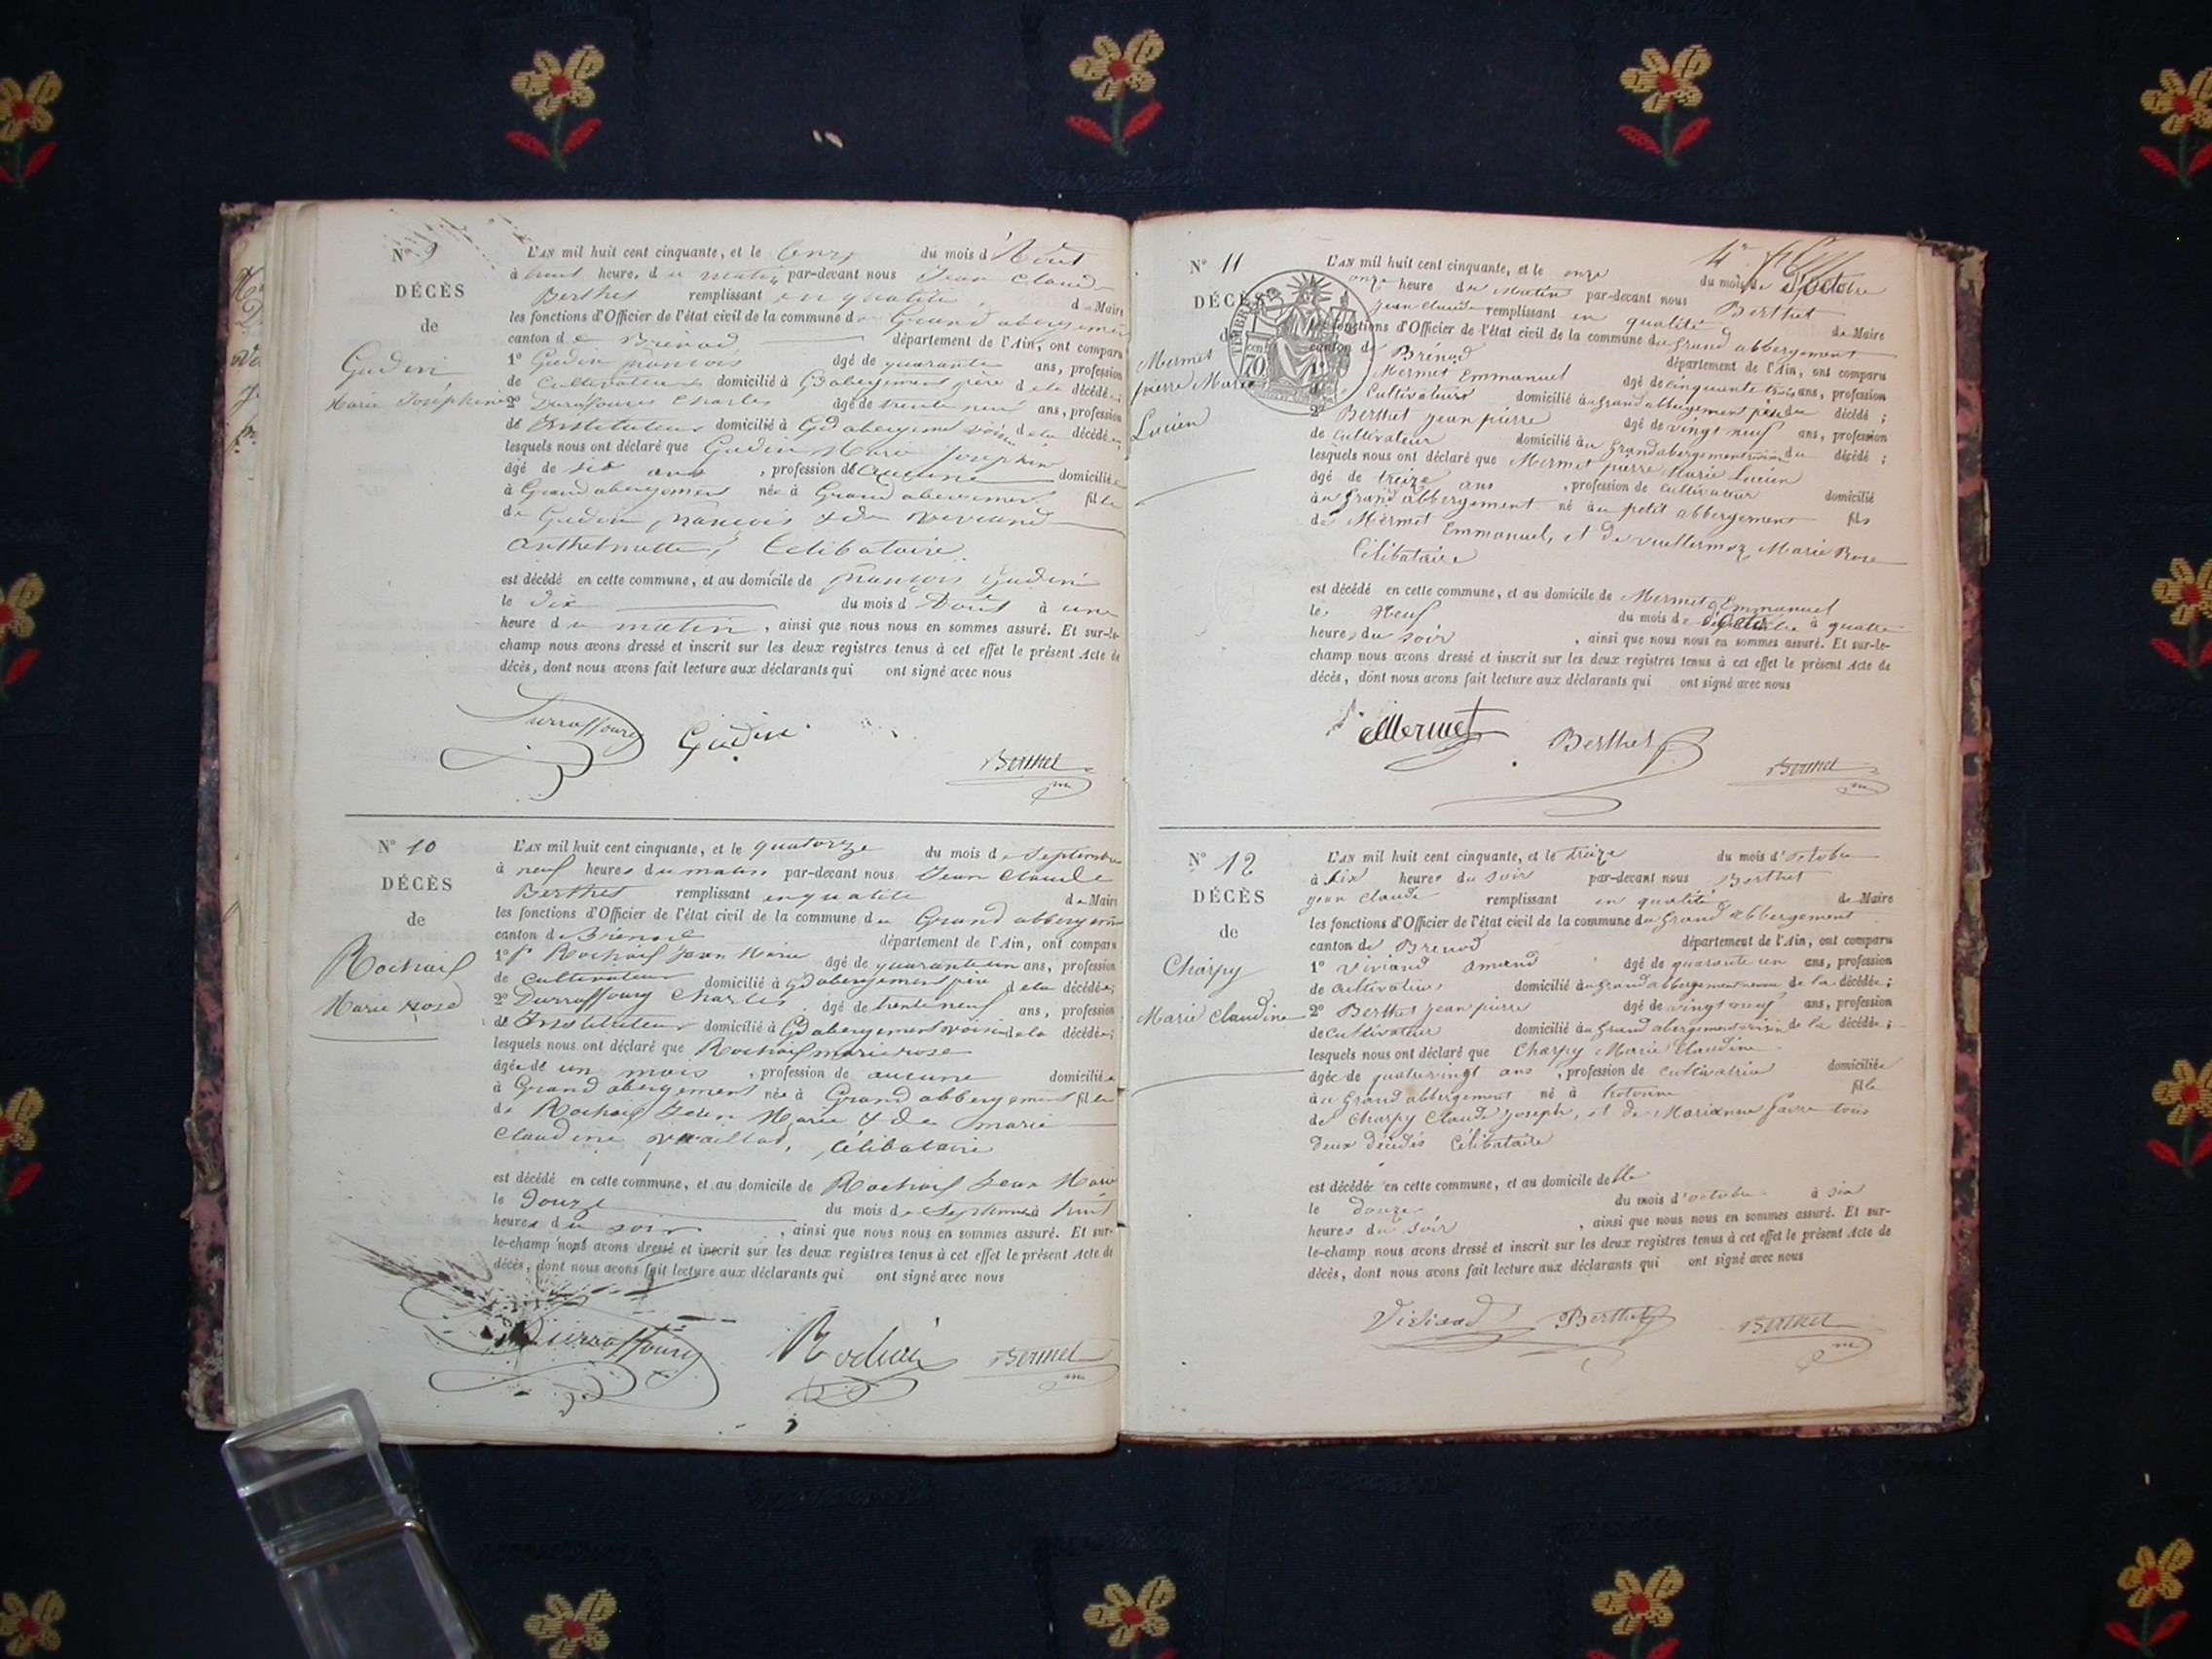 N° 9
DÉCÈS
de
Gudin
Marie Joséphine
L'AN mil huit cent cinquante, et le onze du mois d'Août
à huit heure, d u matin par-devant nous Jean Claude
Berthet remplissant en qualité de Maire
les fonctions d'Officier de l'état civil de la commune d Grand abergement
canton de Brénod département de l'Ain, ont comparu
1° Gudin françois âgé de quarante ans, profession
de Cultivateur domicilié à Gd abergement père de la décédée
2° Durraffourg Charles âgé de trente neuf ans, profession
de Instituteur domicilié à Gd abergement voisin de la décédée
lesquels nous ont déclaré que Gudin Marie Josephine
âgé de six ans, profession de aucune domiciliée
à Grand abergement née à Grand abergement fille
de Gudin françois & de Viviand
Anthelmette, Célibataire
est décédé en cette commune, et au domicile de françois Gudin
le dix du mois d'Août à une
heure du matin, ainsi que nous nous en sommes assuré. Et sur-le-
champ nous avons dressé et inscrit sur les deux registres tenus à cet effet le présent Acte de
décès, dont nous avons fait lecture aux déclarants qui ont signé avec nous
Durraffourg Gudin Berthet
N° 10
DÉCÈS
de
Rochaix
Marie rose
L'AN mil huit cent cinquante, et le quatorze du mois de Septembre
à neuf heures du matin par-devant nous Jean Claude
Berthet remplissant en qualité de Maire
les fonctions d'Officier de l'état civil de la commune du Grand abbergement
canton de Brénod département de l'Ain, ont comparu
1° Rochaix Jean Marie âgé de quarante un ans, profession
de cultivateur domicilié à Gd abergement père de la décédée;
2° Durraffourg Charles âgé de trente neuf ans, profession
de Instituteur domicilié à Gd abergement voisin de la décédée;
lesquels nous ont déclaré que Rochaix marie rose
âgée de un mois, profession de aucune domiciliée
à Grand abergement née à Grand abbergement fille
de Rochaix Jean Marie & de marie
Claudine Célibataire
est décédé en cette commune, et au domicile de Rochaix Jean Marie
le Douze du mois de Septembre à huit
heures du soir, ainsi que nous nous en sommes assuré. Et sur-
le-champ nous avons dressé et inscrit sur les deux registres tenus à cet effet le présent Acte de
décès, dont nous avons fait lecture aux déclarants qui ont signé avec nous
Durraffourg Rochaix Berthet
4e
N° 11
DÉCÈS
de
Mermet
pierre Marie
Lucien
TIMBRE
70
L'AN mil huit cent cinquante, et le onze du mois de Octobre
onze heure du Matin par-devant nous Berthet
Jean Claude remplissant en qualité de Maire
les fonctions d'Officier de l'état civil de la commune du Grand abbergement
canton de Brénod département de l'Ain, ont comparu
1° Mermet Emmanuel âgé de cinquante trois ans, profession
de Cultivateur domicilié au Grand abbergement père du décédé;
2° Berthet Jean pierre âgé de vingt neuf ans, profession
de cultivateur domicilié au Grand abergement voisin du décédé;
lesquels nous ont déclaré que Mermet pierre Marie Lucien
âgé de treize ans, profession de cultivateur domicilié
au Grand abbergement né au petit abbergement fils
de Mermet Emmanuel, et de vuillermoz Marie Rose
Célibataire
est décédé en cette commune, et au domicile de Mermet Emmanuel
le Neuf du mois de à quatre
heures du soir, ainsi que nous nous en sommes assuré. Et sur-le-
champ nous avons dressé et inscrit sur les deux registres tenus à cet effet le présent Acte de
décès, dont nous avons fait lecture aux déclarants qui ont signé avec nous
Mermet Berthet Berthet
N° 12
DÉCÈS
de
Charpy
Marie Claudine
L'AN mil huit cent cinquante, et le treize du mois d'octobre
à six heures du soir par-devant nous Berthet
Jean Claude remplissant en qualité de Maire
les fonctions d'Officier de l'état civil de la commune du Grand abbergement
canton de Brenod département de l'Ain, ont comparu
1° Viviand Amand âgé de quarante un ans, profession
de cultivateur domicilié au Grand abbergement neveu de la décédée;
2° Berthet Jean pierre âgé de vingt neuf ans, profession
de cultivateur domicilié au Grand abergement voisin de la décédée;
lesquels nous ont déclaré que Charpy Marie Claudine
âgée de quatrevingt ans, profession de cultivatrice domiciliée
au Grand abbergement né à hotonne fille
de Charpy Claude Joseph, et de Marianne favre tous
Deux décédés Célibataire
est décédée en cette commune, et au domicile de elle
le douze du mois d'octobre à six
heures du soir, ainsi que nous nous en sommes assuré. Et sur-
le-champ nous avons dressé et inscrit sur les deux registres tenus à cet effet le présent Acte de
décès, dont nous avons fait lecture aux déclarants qui ont signé avec nous
Viviand Berthet Berthet